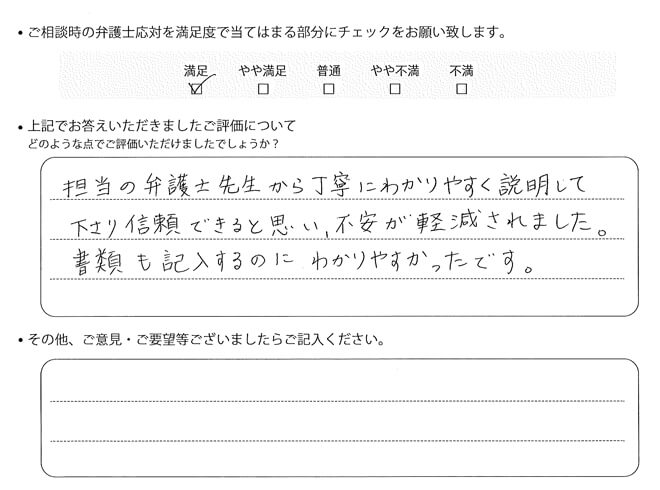 ・ご相談時の弁護士応対を満足度で当てはまる部分にチェックをお願い致します。
満足 やや満足 普通 やや不満 不満
☑ □ □ □ □
・上記でお答えいただきましたご評価について
どのような点でご評価いただけましたでしょうか？
担当の弁護士先生から丁寧にわかりやすく説明して
下さり信頼できると思い、不安が軽減されました。
書類も記入するのにわかりやすかったです。
・その他、ご意見・ご要望等ございましたらご記入ください。